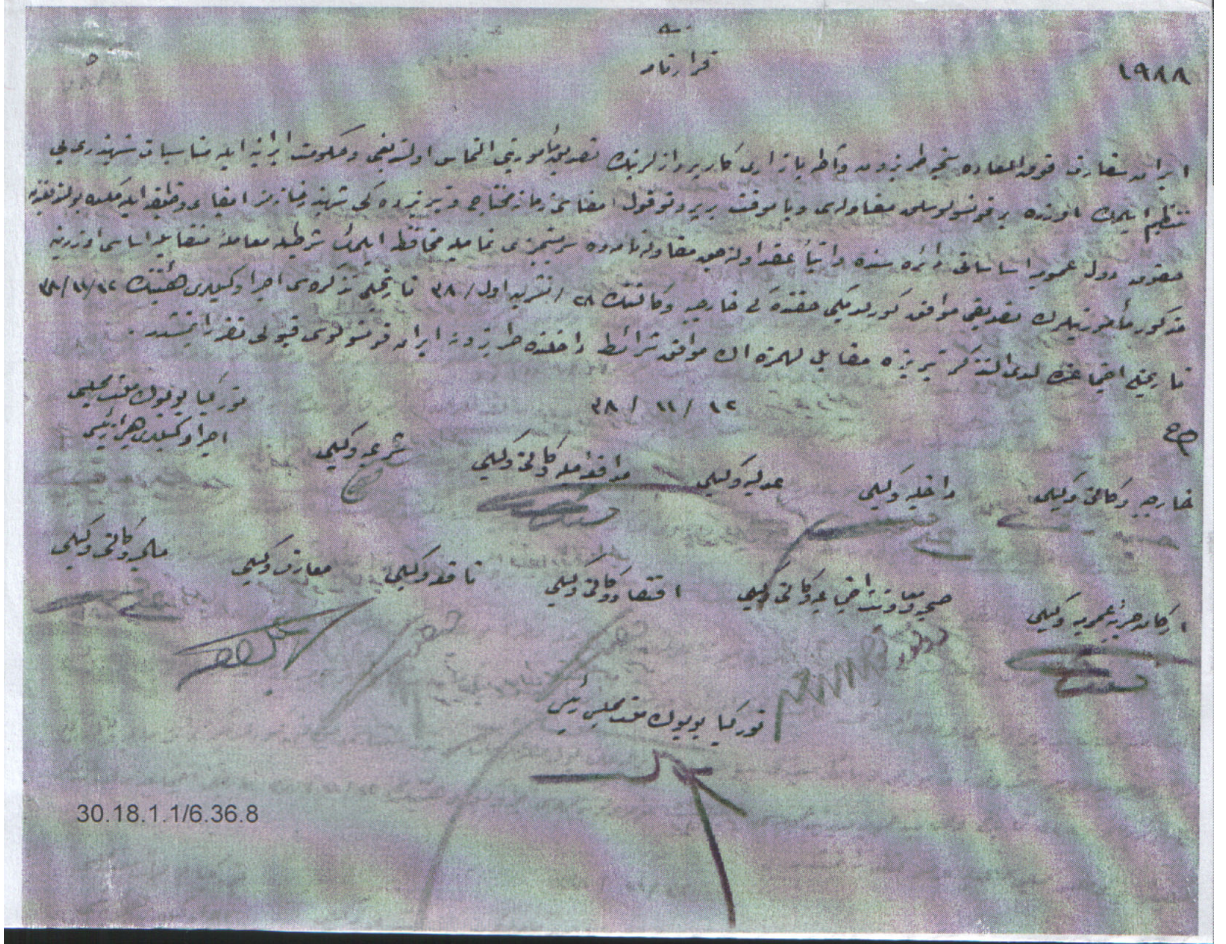 قرارنامه
١٩٨٨
ایران سفارت فوق‌العاده‌سنجه طربزون و قاطر یازاری کارپردازلرینك تصدیق مأموریتی التماس اولندیغی و حکومت ایرانیه ایله مناسبات شهبندری‌یی
تنظیم ایلمك اوزره بر قونسولوسلق مقاوله‌سی ویا موقت بر پروتوقول امضاسی زمانه محتاج و تبریزده کی شهبندریمز ایفای وظیفه ایله‌مکده بولندیغندن
حقوق دول عمومیه اساساتی دائره سنده و آتیاً عقد اولنه‌جق مقاوله‌نامه‌ده سربستیمزی تمامیله محافظه ایلمك شرطیله معاملهٔ متقابله اساسی اوزرینه
مذکور مأموریتلرك تصدیقی موافق کورلدیکی حقنده کی خارجیه وکالتنك ٢٨ / تشرین اول / ٣٨ تاریخلی تذکره‌سی اجرا وکیللری هیئتنك ١٢/١١/٣٨
تاریخلی اجتماعنده لدی‌التذکر تبریزه مقابل شرائط داخلنده طربزون ایران قونسولوسی قبولی تقرر ایتمشدر.
١٢ / ١١ / ٣٨
تورکیا بویوك ملت مجلسی
اجرا وکیللری هیئتی رئیسی
شرعیه وکیلی
مدافعهٔ ملیه وکالتی وکیلی
عدلیه وکیلی
داخلیه وکیلی
خارجیه وکالتی وکیلی
مالیه وکالتی وکیلی
معارف وکیلی
نافعه وکیلی
اقتصاد وکالتی وکیلی
صحیه و معاونت اجتماعیه وکالتی وکیلی
ارکان حربیهٔ عمومیه وکیلی
تورکیا بویوك ملت مجلسی رئیسی
30.18.1.1/6.36.8